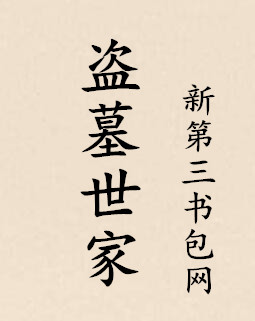 盗墓世家
新第三书包网